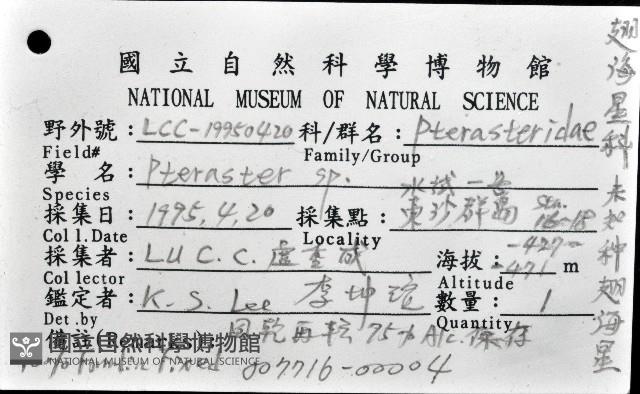 國立自然科學博物館
NATIONAL MUSEUM OF NATURAL SCIENCE
野外號：LCC-19950420 科/群名：Pterasteridae
Field# Family/Group
學 名：Pteraster sp.
Species
水試一号
採集日：1995.4.20 採集點：東沙群島 Sta. 16-18
Coll.Date Locality
採集者：LU C.C. 盧重成 海拔：-427~-471 m
Collector Altitude
鑑定者：K.S. Lee 李坤瑄 數量：1
Det.by Quantity
備註(Remarks)： 風乾再転 75% Alc. 保存
國立自然科學博物館
NATIONAL MUSEUM OF NATURAL SCIENCE
007716-00004
翅海星科 未知种翅海星